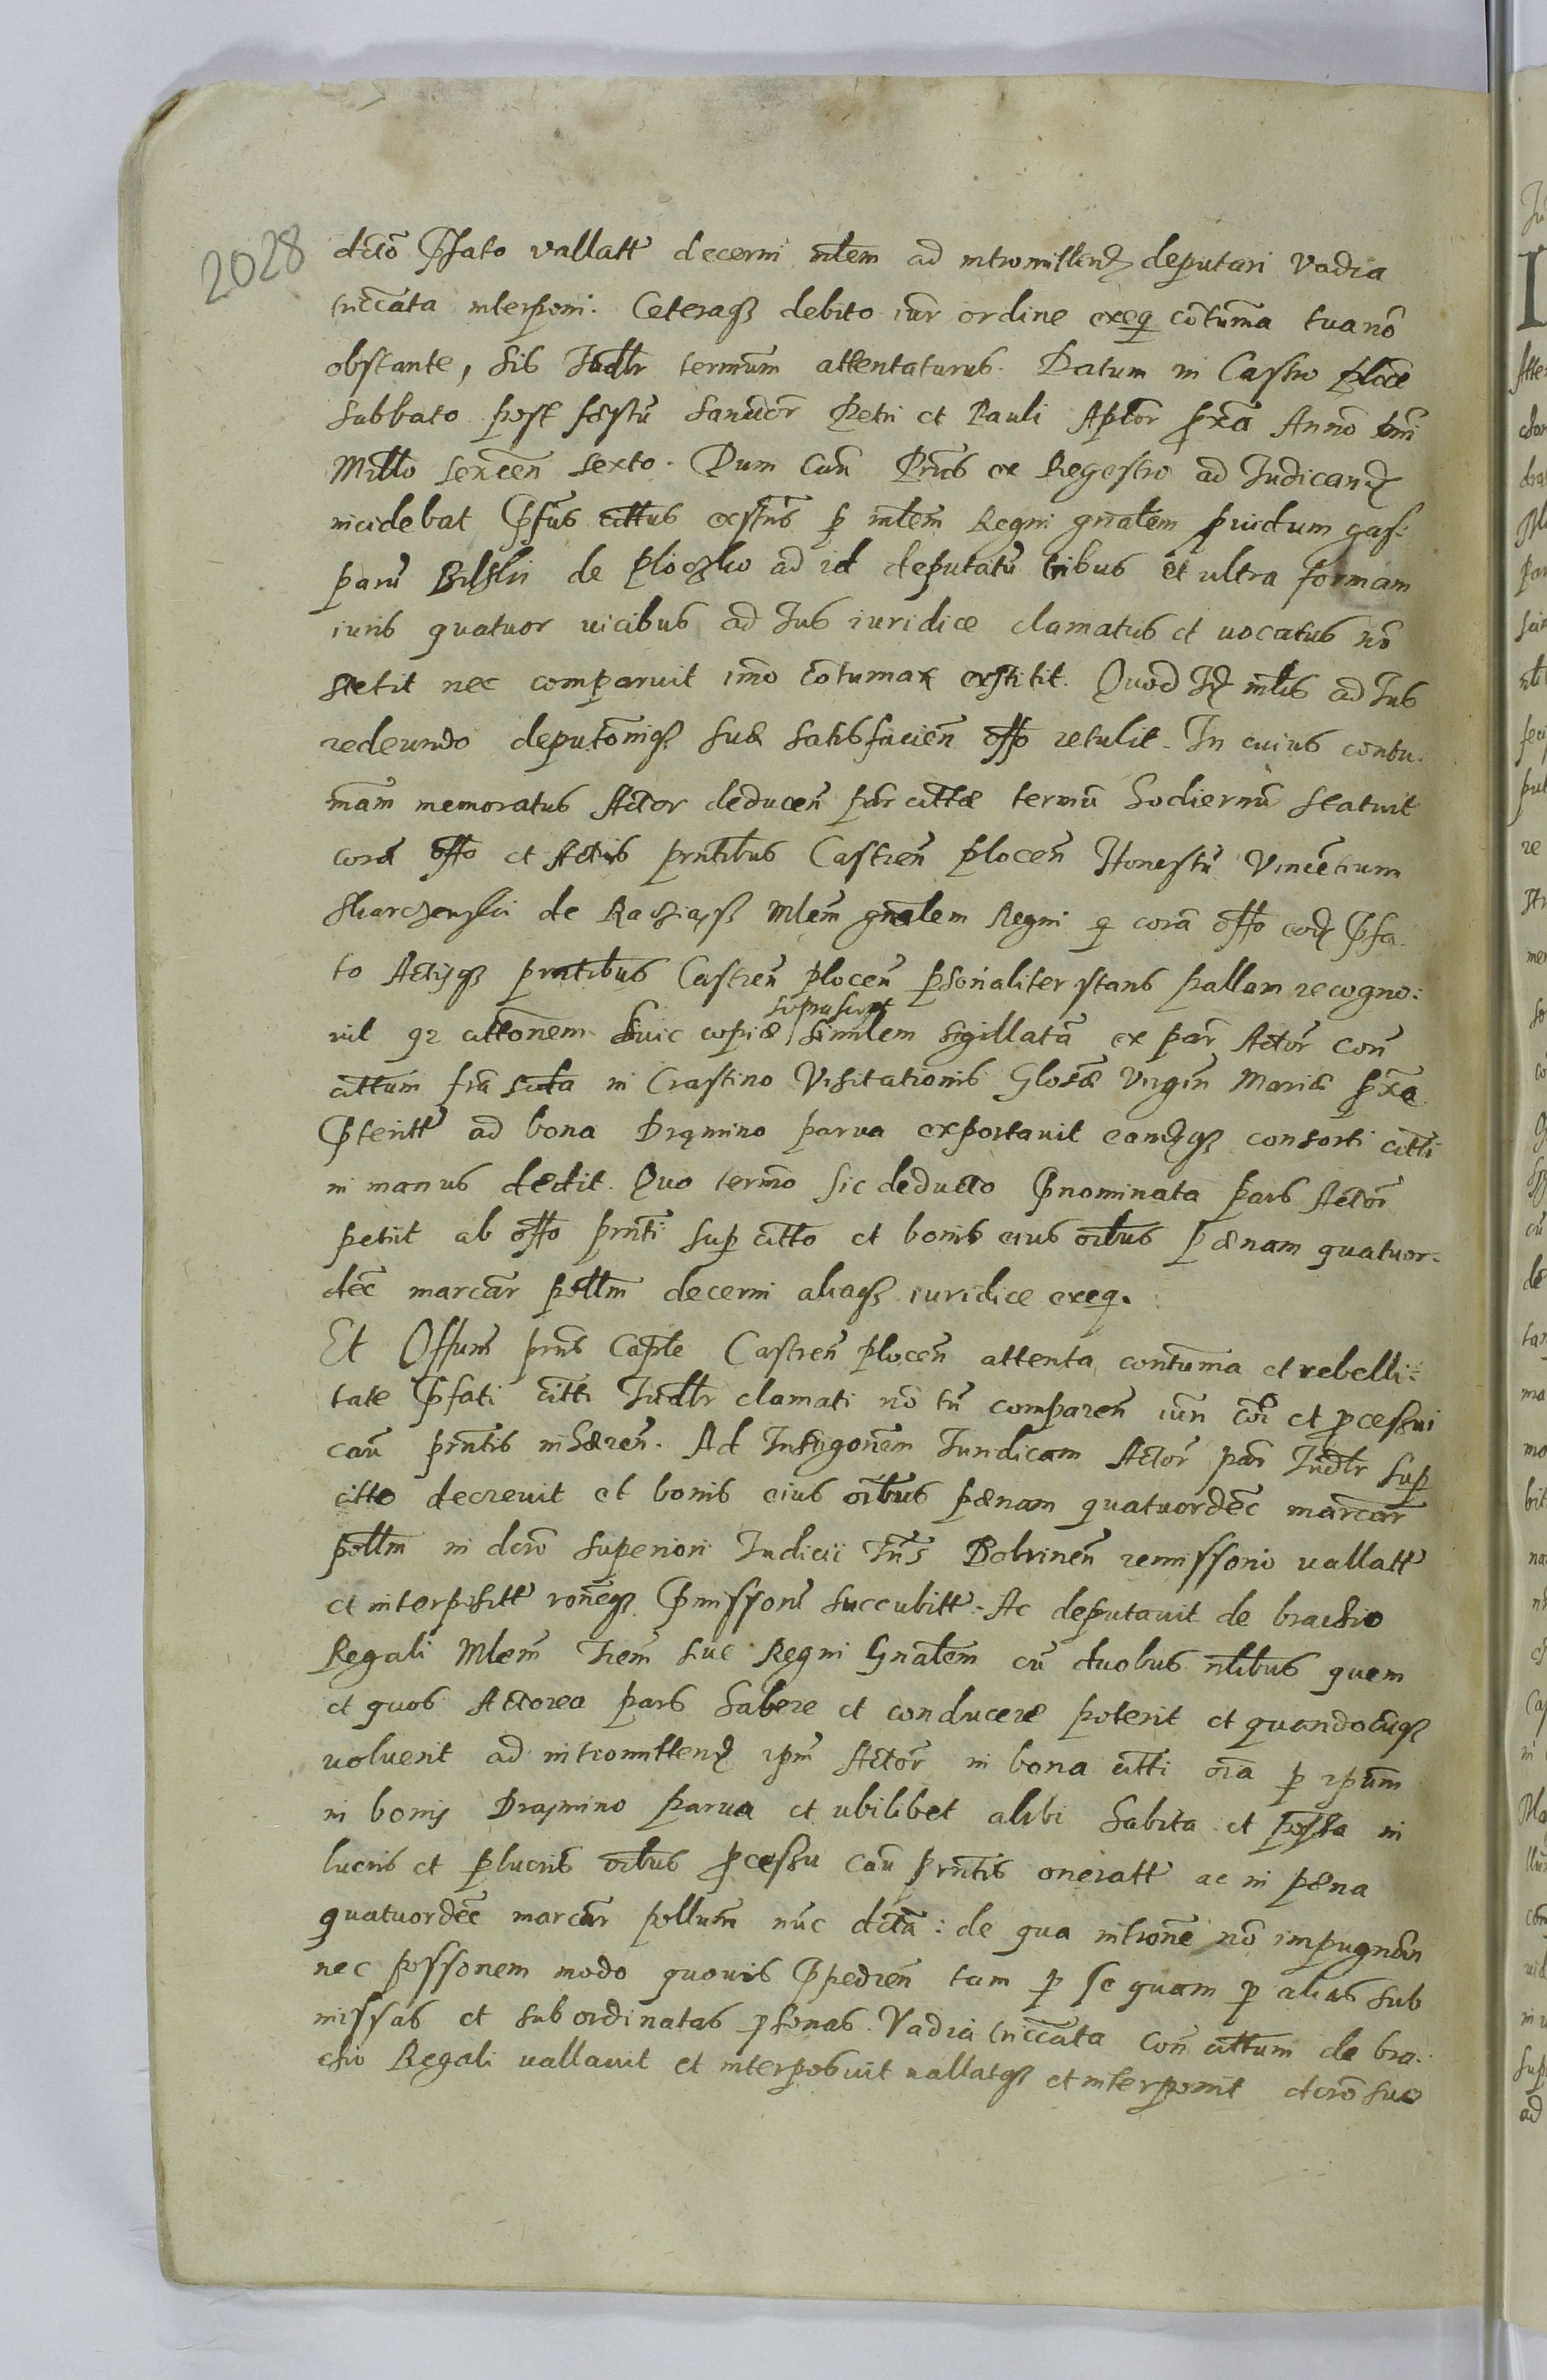 2028
dctō Pfato vallatt decerni ntem ad intromittend deputari vadia
triccata interponi. Ceteraq debito iur ordine exeq cōtuma tua nō
obstante, his Iudlr termum attentaturus. Datum in Castro plocē
sabbato post festū sanctor Petri et Pauli Aptor pxa Anno Dni
Millo sexcen sexto. Dum cau Prns ex Regestro ad Iudicand
incidebat Pfus cittus exstns p mlem Regni gnalem pvidum gas:
parū Bilski de ploczko ad id deputatū tribus et ultra formam
iuris quatuor vicibus ad Ius iuridice clamatus et vocatus nō
stetit nec comparuit imo cōtumax exstitit. Quod Id mlis ad Ius
redeundo deputōniq suæ satisfacien offo retulit. In cuius contu:
mam memoratus Actor deducen par cittæ termū hodiernū statuit
corā offo et Actis prntibus Castren plocen Honestū Vincētium
de mlem gnalem Regni q corā offo eod Pfa.
to Actisq prntibus Castren plocen psonaliter stans pallam recogno:
vit qz cittōnem huic copiæ suprascrpt similem sigillatā ex par Actor con
cittum fra scda in Crastino Visitationis Glosæ Virgin Mariæ pxe
Pteritt ad bona Drąmino parva exportavit eandq consorti citti
in manus dedit. Quo termo sic deducto Pnominata pars Actor
petiit ab offo prnti sup citto et bonis eius oibus pænam quatuor.
dec marcar pollm decerni aliaq iuridice exeq.
Et Offum prns Caple Castren plocen attenta contuma et rebelli:
tate Pfati citti Iudlr clamati nō tn comparen iuri coi et pcessui
cau prntis inhæren. Ad Instigonem Iuridicam Actor par Iudlr sup
citto decrevit et bonis eius oibus pænam quatuordec marcar
pollm in dcro superiori Iudicii Tris Dobrinen remissorio vallatt
et interpositt roneq Pmissorū succubitt. Ac deputavit de brachio
Regali Mlem Trem sive Regni Gnalem cū duobus nlibus quem
et quos Actorea pars habere et conducere poterit et quandocuq
voluerit ad intromittend ipm Actor in bona citti oia p ipum
in bonis Drąmino parva et ubilibet alibi habita et possa in
lucris et plucris oibus pcessu cau prntis oneratt ac in pæna
quatuordec marcar pollum nūc dicta: de qua introne nō impugnan
nec possonem modo quovis Ppedien tam p se quam p alias sub
missas et subordinatas psonas. Vadia triccata con cittum de bra:
chio Regali vallavit et interposuit vallatq et interponit dcro suo